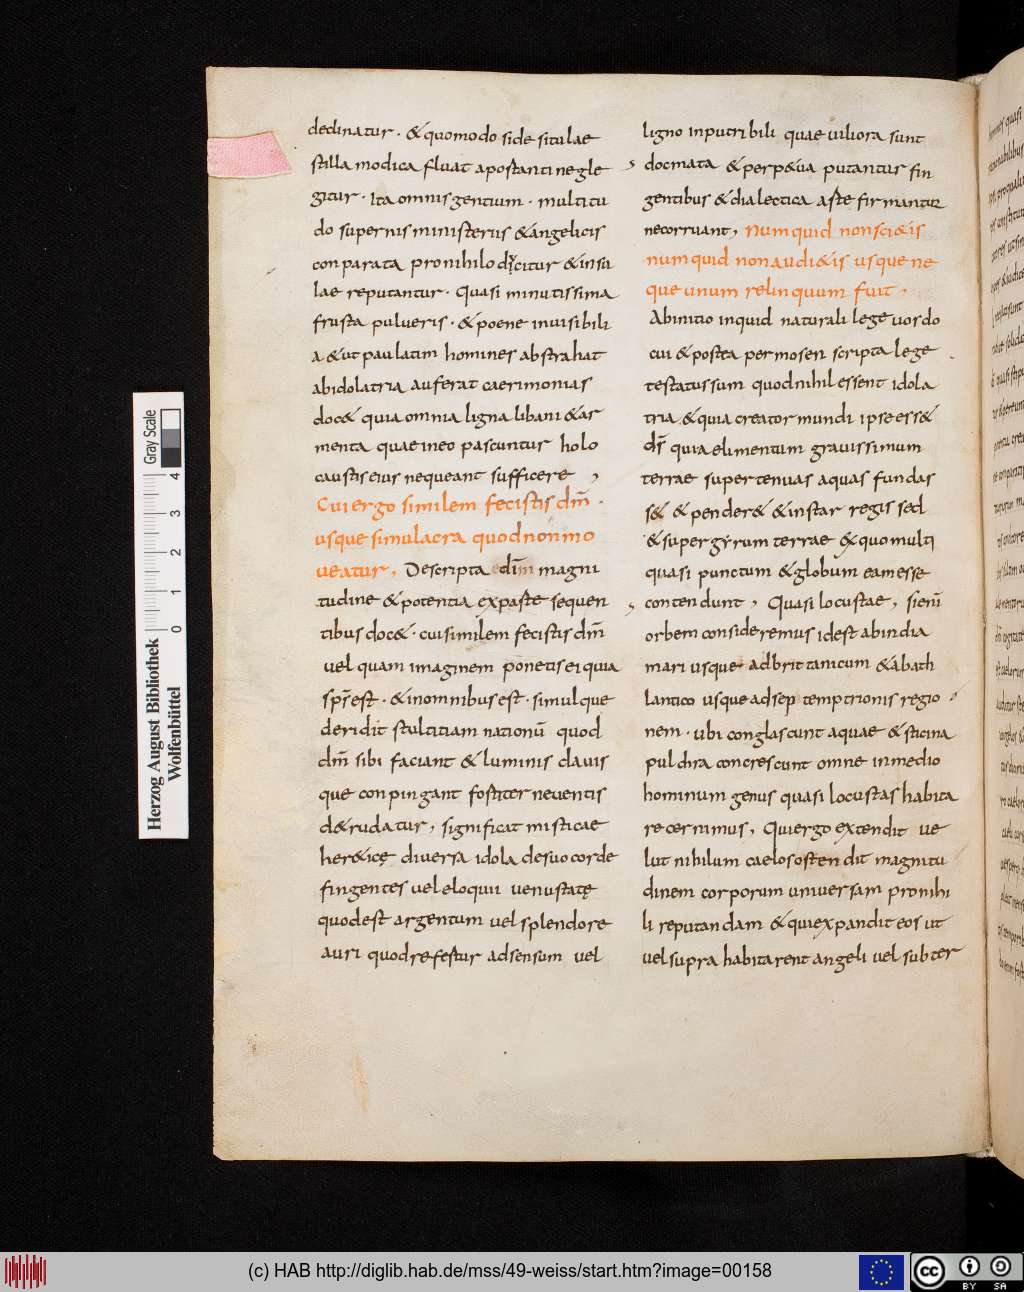 declinatur · & quomodo si de situlae
stilla modica fluat a postanti negle
gitur · Ita omnis gentium · multitu
do supernis ministerus & angelicis
conparata pro nihilo dicitur & insu
lae reputantur · Quasi minutissima
frusta pulueris · & poene inuisibili
a & ut paulatim homines abstrahat
ab idolatria auferat caerimonias
doc& quia omnia ligna libani & ar
menta quae in eo pascuntur holo
caustis eius nequeant sufficere ,
Cui ergo similem fecistis dm̄ ·
usque simulacra quod non mo
ueatur , Descripta dīm magni
tudine & potentia ex paste sequen
tibus doc& · cui similem fecistis dm̄
uel quam imaginem ponetis ei quia
sps̄ est · & in omnibus est · simulque
deridit stultitiam nationū quod
dm̄ sibi faciant & luminis clauis
que conpingant fostiter neuentis
d&rudatur , significat misticae
her&icę diuersa idola de suo corde
fingentes uel eloquii uenustatę
quod est argentum uel splendore
auri quod refestur ad sensum uel
ligno inputribili quae uiliora sunt
docmata & perp&ua putantur fin
gentibus & dialectica aste firmantur
ne corruant , Numquid non sci&is
numquid non audi&is usque ne
que unum relinquum fuit ,
Ab initio inquid naturali lege uos do
cui & postea per mosen scripta lege
testatus sum quod nihil essent idola
tria & quia creator mundi ipse ess&
ds̄ quia elimentum grauissimum
terrae super tenuas aquas fundas
s& & pender& & instar regis sed
& super gyrum terrae & quo multi
quasi punctum & globum eam esse
contendunt , Quasi locustae , si enī
orbem consideremus id est ab india
mari usque ad brittanicum & ab ath
lantico usque ad septemptrionis regio
nem · ubi conglascunt aquae & sticina
pulchra concrescunt omne in medio
hominum genus quasi locustas habita
re cernimus , Qui ergo extendit ue
lut nihilum caelos ostendit magnitu
dinem corporum uniuersam pro nihi
li reputandam & qui expandit eos ut
uel supra habitarent angeli uel subter
Herzog August Bibliothek
Wolfenbüttel
0 1 2 3 4
Gray Scale
(c) HAB http://diglib.hab.de/mss/49-weiss/start.htm?image=00158
cc BY SA